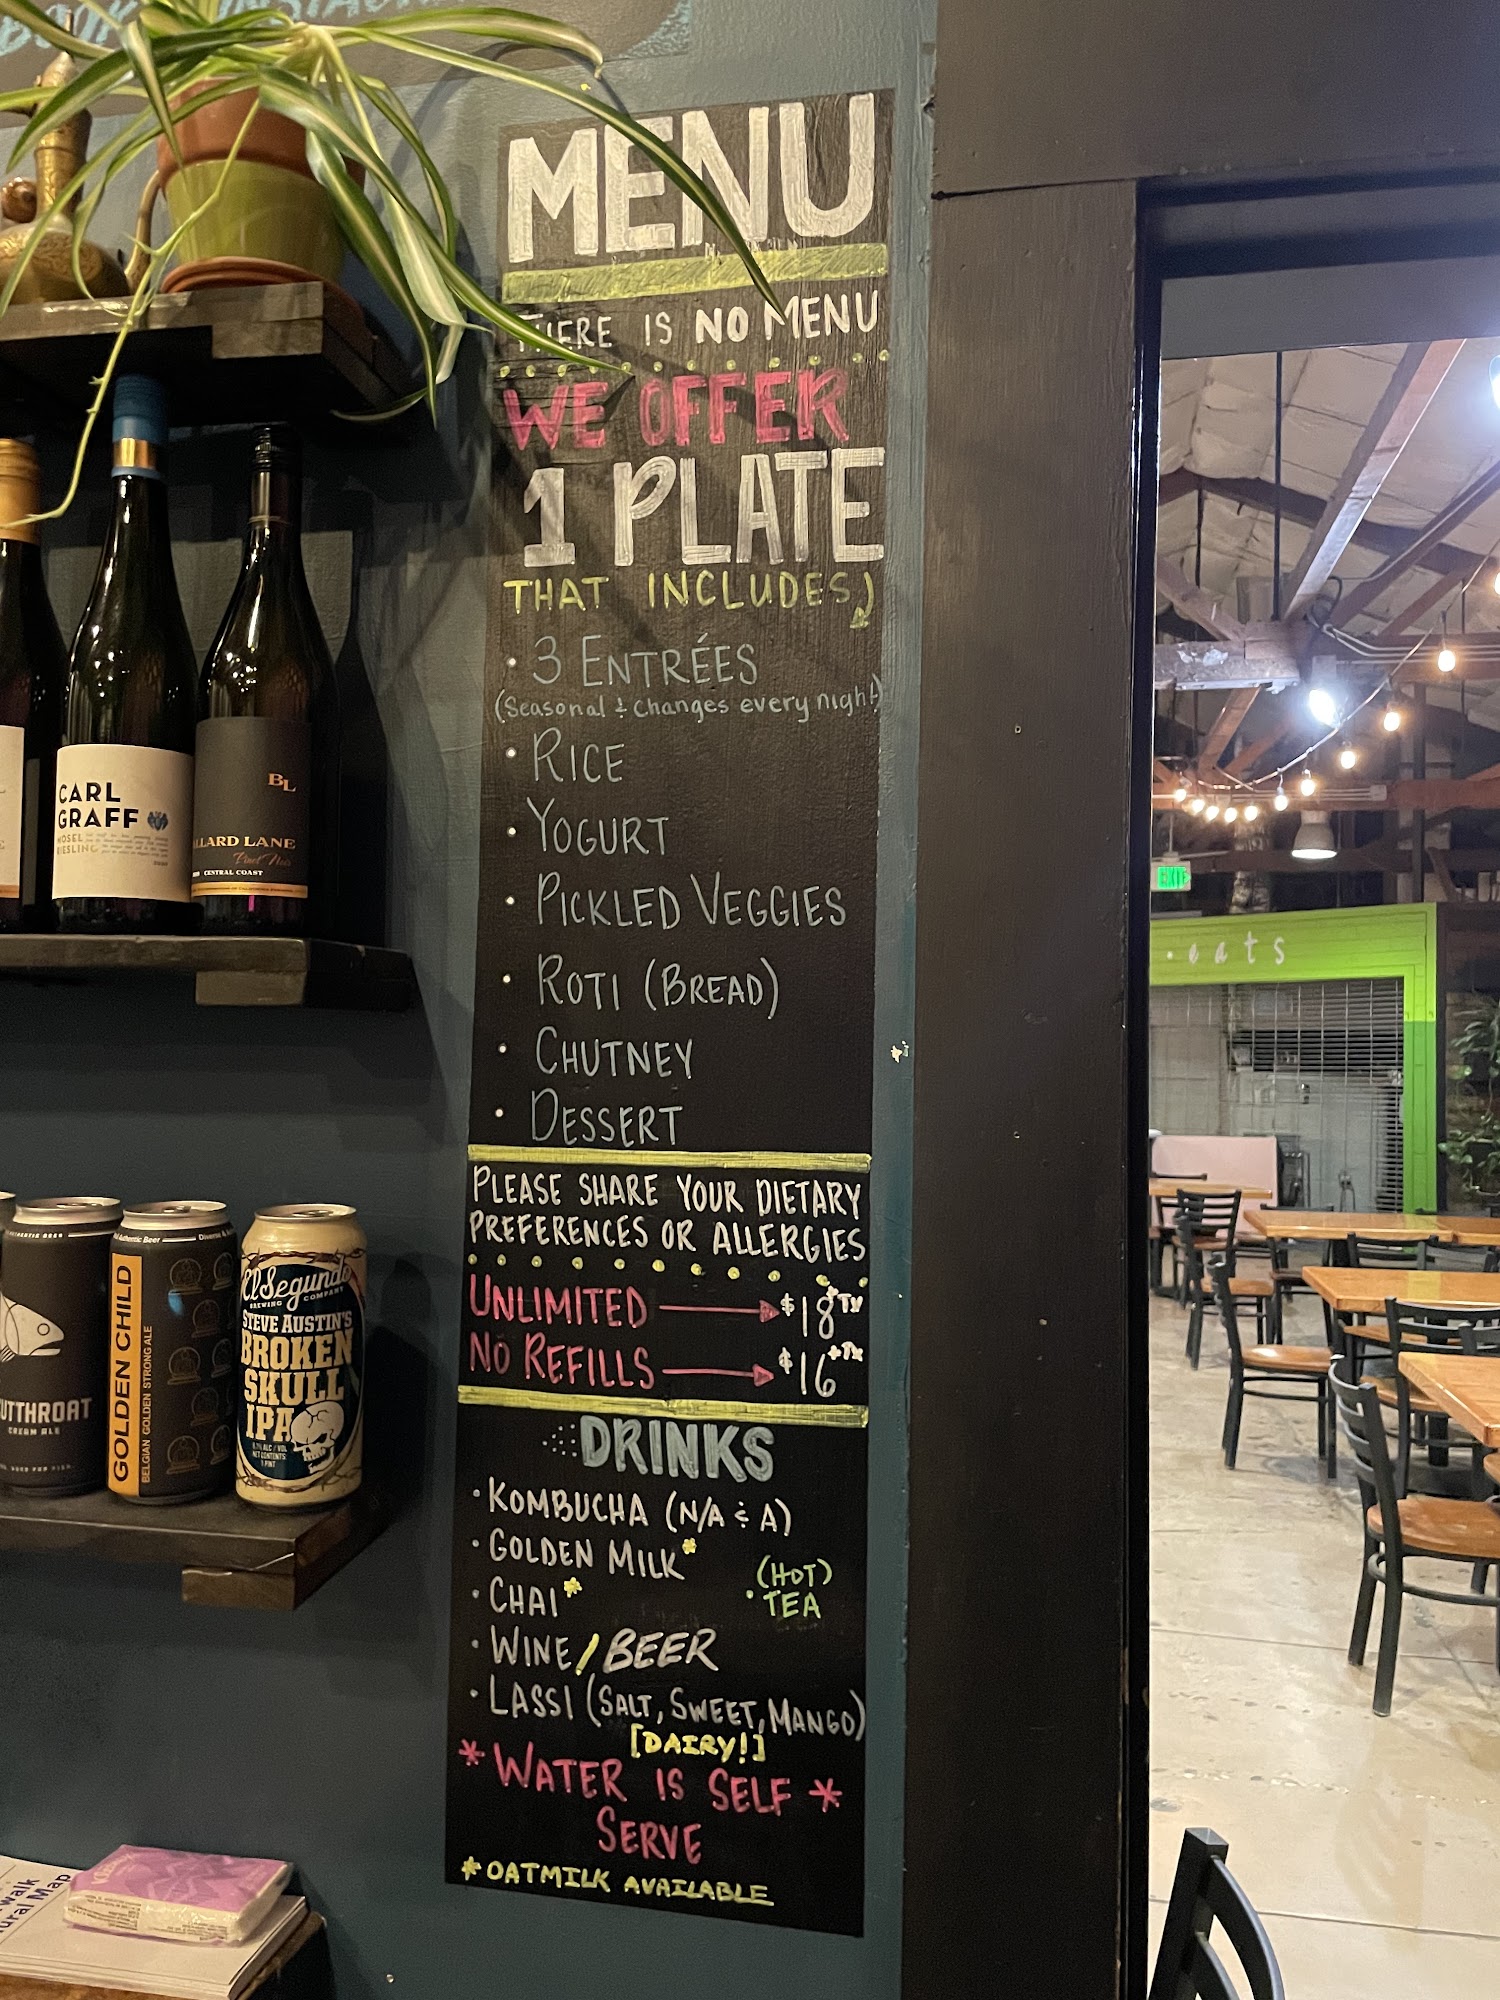 MENU
THERE IS NO MENU
WE OFFER
1 PLATE
THAT INCLUDES
• 3 ENTRÉES
(Seasonal & changes every night)
• RICE
• YOGURT
• PICKLED VEGGIES
• ROTI (BREAD)
• CHUTNEY
• DESSERT
PLEASE SHARE YOUR DIETARY
PREFERENCES OR ALLERGIES
UNLIMITED → $18+Tx
NO REFILLS → $16+Tx
DRINKS
• KOMBUCHA (N/A & A)
• GOLDEN MILK*
• CHAI*
(HOT)
• TEA
• WINE/BEER
• LASSI (SALT, SWEET, MANGO)
[DAIRY!]
* WATER IS SELF *
SERVE
* OATMILK AVAILABLE
CARL
GRAFF
MOSEL
RIESLING
BL
LLARD LANE
Pinot Noir
CENTRAL COAST
UTTHROAT
CREAM ALE
GOLDEN CHILD
BELGIAN GOLDEN STRONG ALE
Authentic Beer
El Segundo
BREWING COMPANY
STEVE AUSTIN'S
BROKEN
SKULL
IPA
NET CONTENTS
1 PINT
EXIT
eats
walk
ural Map